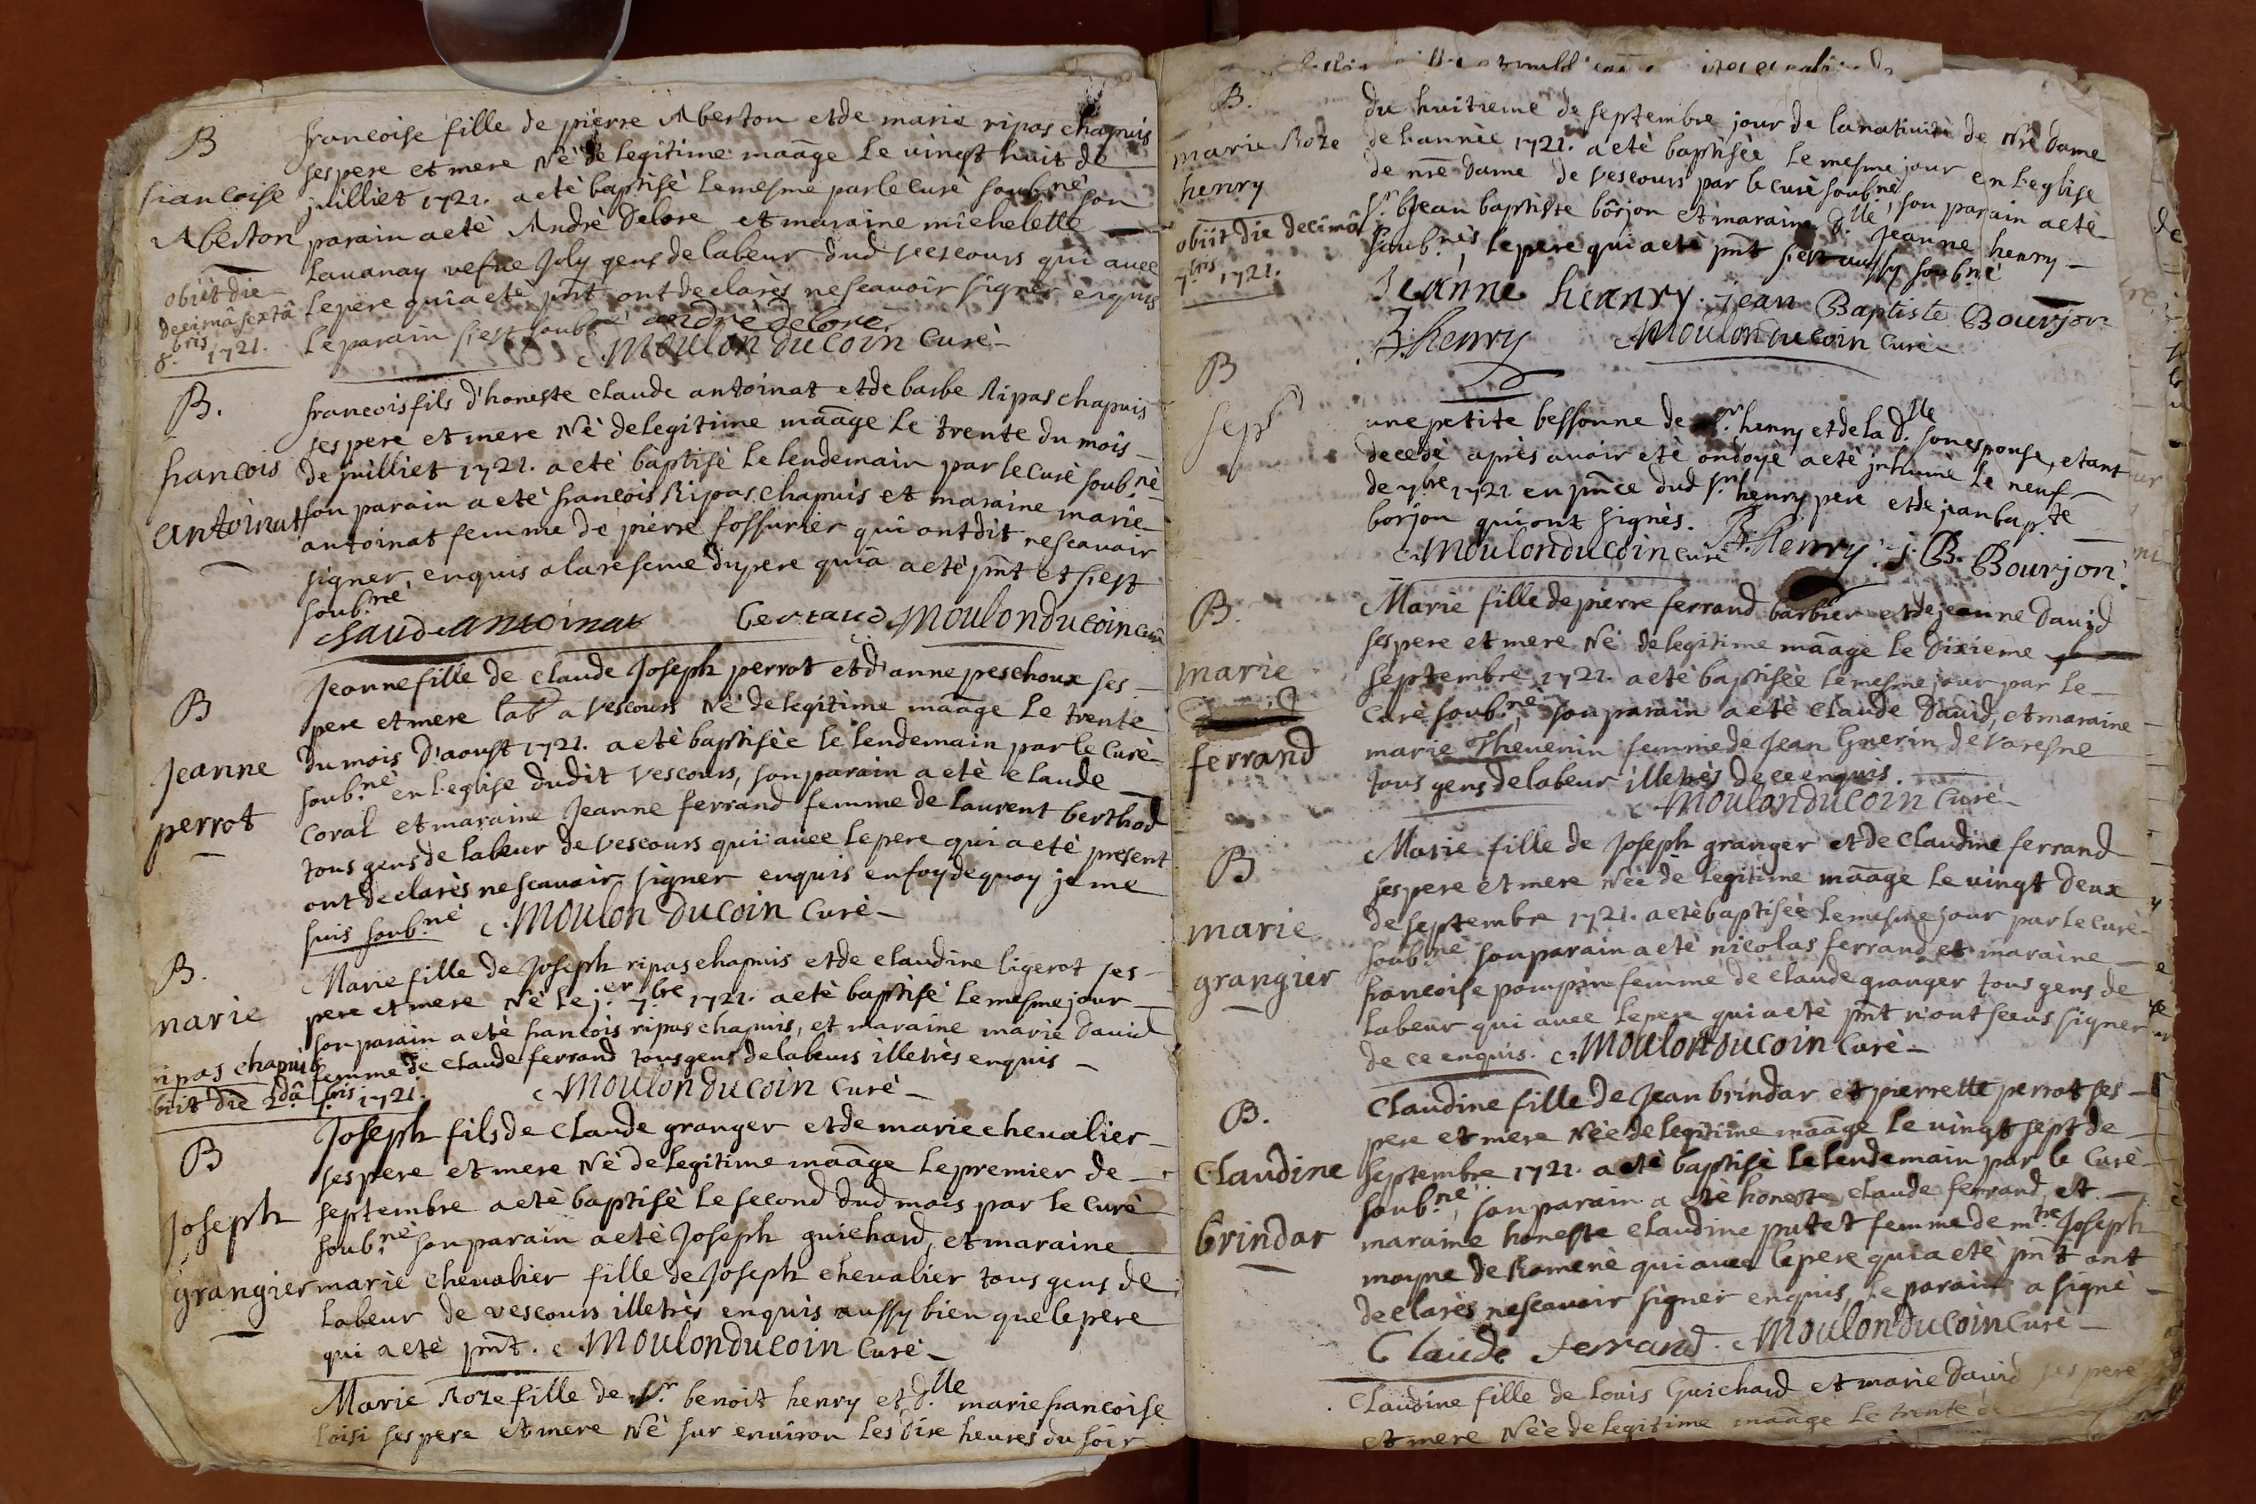 B
francoise
Aberton
obiit die
decimâ sextâ
8.bris 1721.
francoise fille de pierre Aberton et de marie ripas chapuis
ses pere et mere Nè de legitime maãge Le vingt huit de
juilliet 1721. a etè baptisè Le mesme par le curè soub.nè son
parain a etè Andrè Delore et maraine michelette
Lauanay vefue Joly gens de labeur dud vescours qui auec
Le pere qui a etè pñt ont declarès ne scauoir signer enquis
Le parain s'est soub.nè andrè delore
Moulon Ducoin Curè
B.
francois
antoinat
francois fils d'honeste claude antoinat et de barbe Ripas chapuis
ses pere et mere Nè de legitime maãge Le trente du mois
de juilliet 1721. a etè baptisè Le lendemain par le curè soub.nè
son parain a etè francois Ripas chapuis et maraine marie
antoinat femme de pierre fossurier qui ont dit ne scauoir
signer, enquis a la reserue du pere qui a etè pñt et s'est
soub.nè
claude antoinat Moulon Ducoin Curè
B
Jeanne
perrot
Jeanne fille de claude Joseph perrot et d'anne peschoux ses
pere et mere lab.r a Vescours Nè de legitime maãge Le trente
du mois D'aoust 1721. a etè baptisèe le lendemain par le Curè
soub.nè en L'eglise dudit Vescours, son parain a etè claude
Coral et maraine Jeanne ferrand femme de Laurent berthod
tous gens de labeur de Vescours qui auec le pere qui a etè present
ont declarès ne scauoir signer enquis en foy de quoy je me
suis soub.nè Moulon Ducoin Curè
B.
marie
ripas chapuis
obiit die 2.dâ 7.bris 1721.
Marie fille de Joseph ripas chapuis et de claudine ligerot ses
pere et mere Nè Le j.er 7.bre 1721. a etè baptisè le mesme jour
son parain a etè francois ripas chapuis, et maraine marie David
femme de claude ferrand tous gens de labeurs illetrès enquis
Moulon Ducoin Curè
B
Joseph
grangier
Joseph fils de claude granger et de marie chevalier
ses pere et mere Nè de legitime maãge Le premier de
septembre a etè baptisè Le second dud mois par le curè
soub.nè son parain a etè Joseph guichard, et maraine
marie chevalier fille de Joseph chevalier tous gens de
Labeur de vescours illetrès enquis aussy bien que le pere
qui a etè pñt. Moulon Ducoin Curè
Marie Roze fille de S.r benoit henry et d.lle marie francoise
Loisi ses pere et mere Nè sur enuiron Les dix heures du soir
B.
marie Roze
henry
obiit die decimâ
7.bris 1721.
du huitieme de septembre jour de la natiuitè de Nre Dame
de L'annèe 1721. a etè baptisèe Le mesme jour en L'eglise
de nre Dame de Vescours par le curè soub.nè, son parain a etè
S.r Jean baptiste borjon et maraine d.lle Jeanne henry
soub.nès, Le pere qui a etè pñt s'est aussy soub.nè
Jeanne heanry. Jean Baptiste Bourjon
B. henry Moulon Ducoin Curè
B
sep.r
une petite bessonne de S.r henry et de la d.lle son espouse, etant
decedè après auoir etè ondoyè a etè inhumè Le neuf
de 7.bre 1721 en pñce dud s.r henry pere et de jean bap.te
borjon qui ont signès. B. henry J. B. Bourjon.
Moulon Ducoin curè
B.
marie
ferrand
Marie fille de pierre ferrand barbier et de jeanne David
ses pere et mere Nè de legitime maãge Le Dixieme
septembre 1721. a etè baptisèe Le mesme jour par Le
Curè soub.nè son parain a etè claude David, et maraine
marie Thevenin femme de Jean Guerin de Varesne
tous gens de labeur illetrès de ce enquis.
Moulon Ducoin Curè
B
marie
grangier
Marie fille de Joseph granger et de Claudine ferrand
ses pere et mere Nèe de legitime maãge Le vingt Deux
de septembre 1721. a etè baptisèe Le mesme jour par le curè
soub.nè son parain a etè nicolas ferrand et maraine
francoise pompin femme de claude granger tous gens de
Labeur qui auec Le pere qui a etè pñt n'ont sceus signer
de ce enquis. Moulon Ducoin Curè
B.
Claudine
brindar
Claudine fille de Jean brindar et pierrette perrot ses
pere et mere Nèe de legitime maãge Le vingt sept de
septembre 1721. a etè baptisè Le lendemain par le Curè
soub.nè, son parain a etè honeste claude ferrand, et
maraine honeste claudine putet femme de m.tre Joseph
moyne de Romenè qui auec le pere qui a etè pñt ont
declarès ne scauoir signer enquis, Le parain a signè
Claude ferrand. Moulon Ducoin Curè
Claudine fille de Louis Guichard et marie David ses pere
et mere Nèe de legitime maãge Le trente de